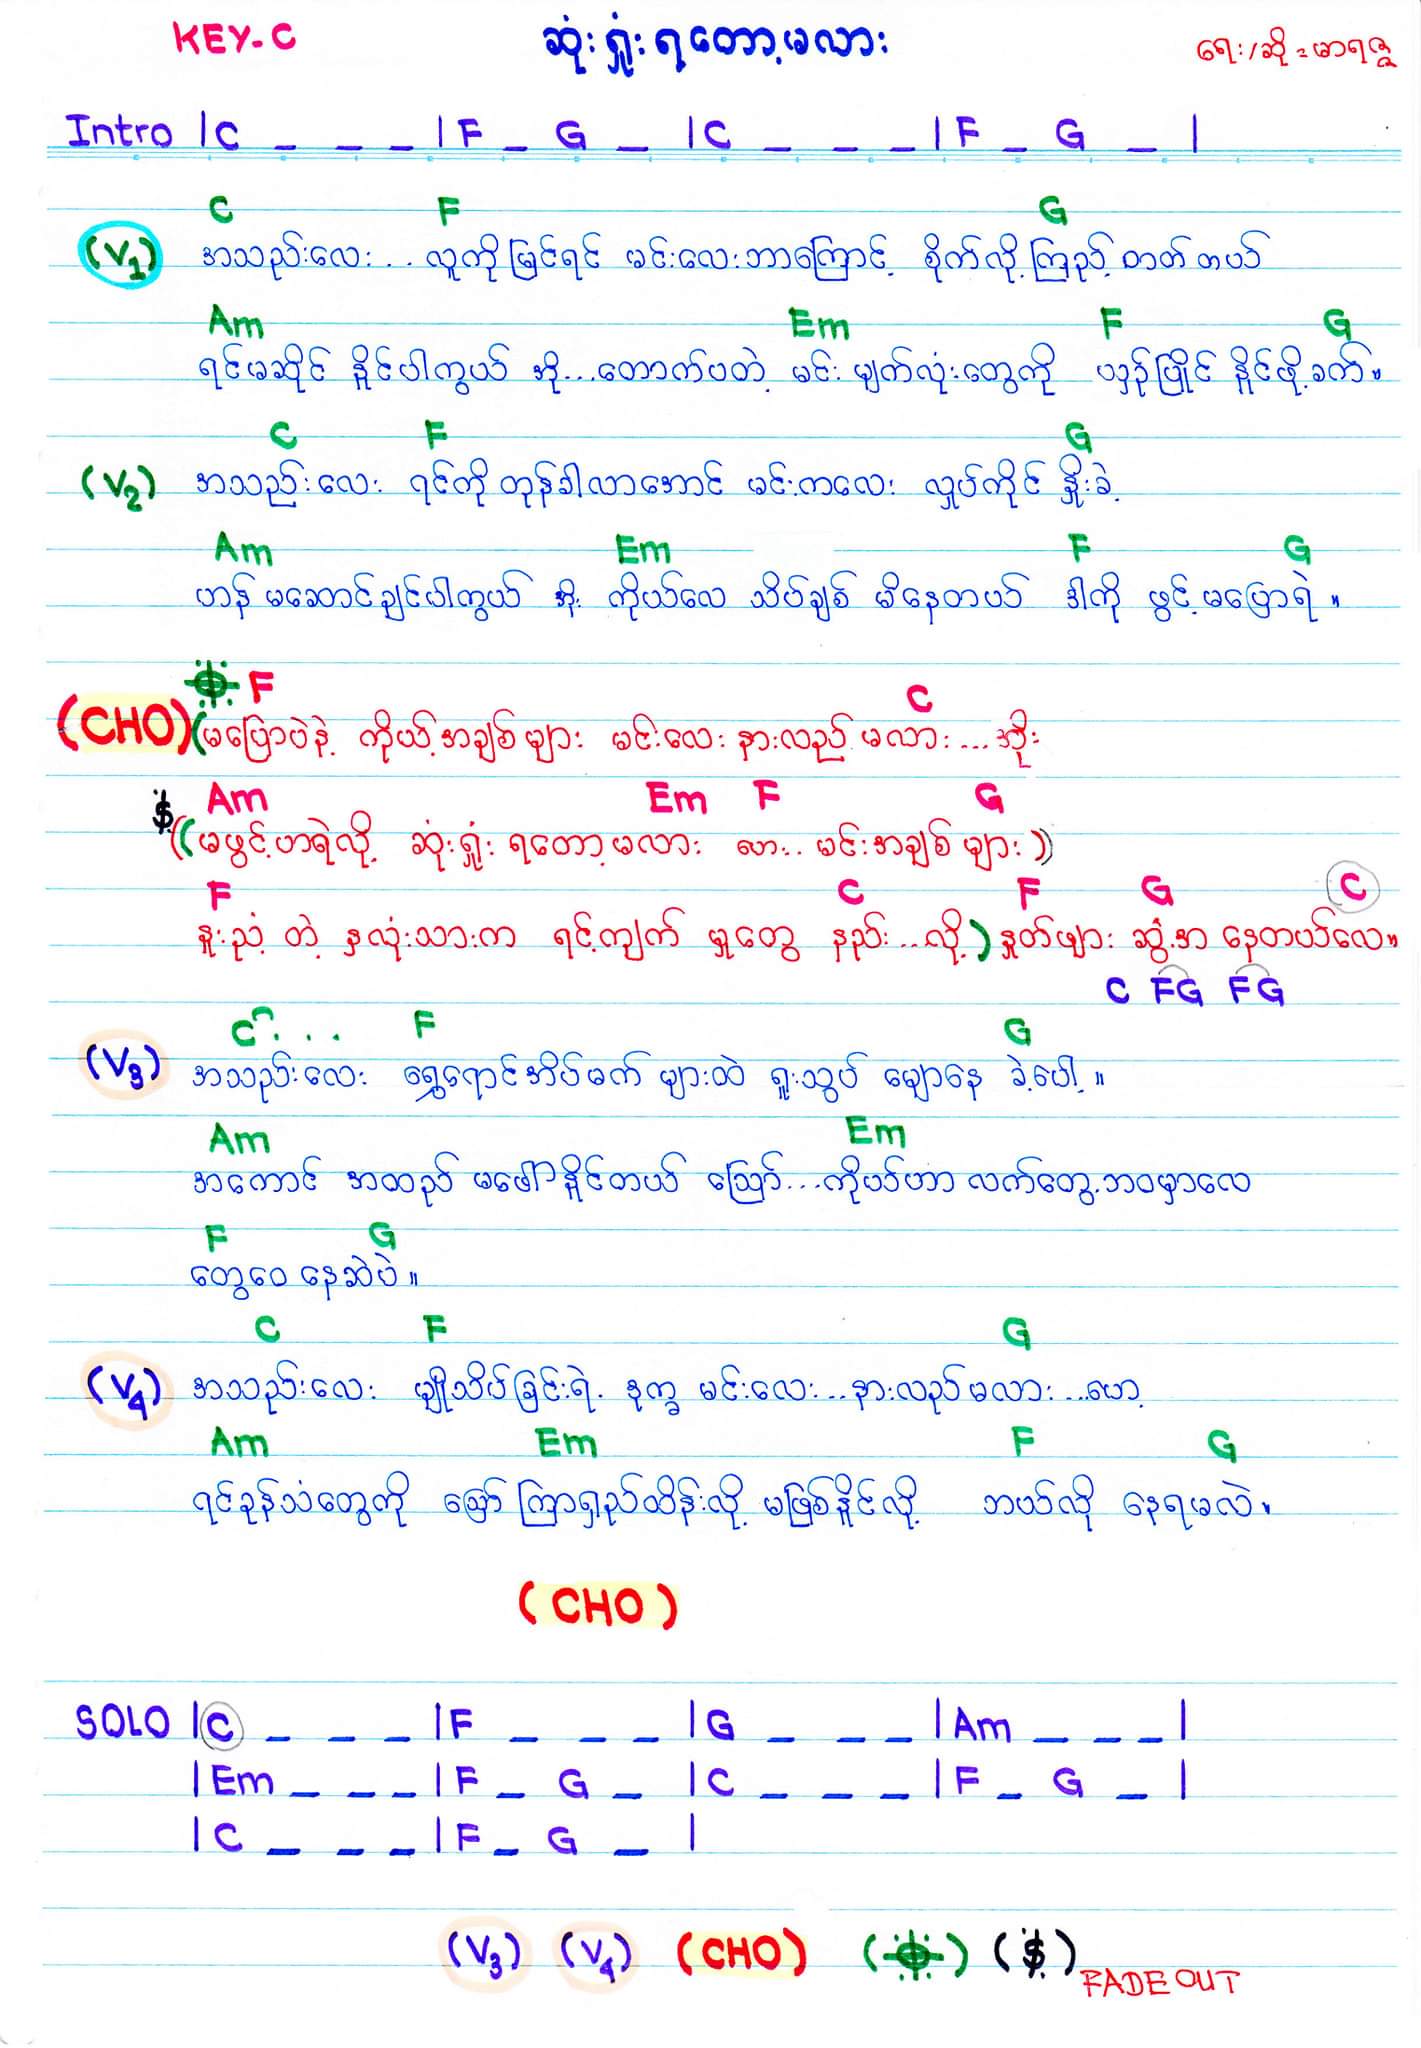 KEY-C ဆုံးရှုံးရတော့မလား ရေး/ဆို = မာရဇ္ဇ
Intro | C _ _ _ | F _ G _ | C _ _ _ | F _ G _ |
C F G
(V1) အသည်းလေး... လူကိုမြင်ရင် မင်းလေးဘာကြောင့် စိုက်လို့ကြည့်တတ်တယ်
Am Em F G
ရင်မဆိုင်နိုင်ပါကွယ် အို...တောက်ပတဲ့ မင်းမျက်လုံးတွေကို ယှဉ်ပြိုင်နိုင်ဖို့ခက်။
C F G
(V2) အသည်းလေး ရင်ကိုတုန်ခါလာအောင် မင်းကလေး လှုပ်ကိုင်နှိုးခဲ့
Am Em F G
ဟန်မဆောင်ချင်ပါကွယ် အိုး ကိုယ်လေ သိပ်ချစ်မိနေတယ် ဒါကို ဖွင့်မပြောရဲ။
F C
(CHO) (မပြောပဲနဲ့ ကိုယ့်အချစ်များ မင်းလေးနားလည်မလား...အိုး
Am Em F G
$ ((မဖွင့်ဟရဲလို့ ဆုံးရှုံးရတော့မလား ဟေး.. မင်းအချစ်များ))
F C F G C
နူးညံ့တဲ့ နှလုံးသားက ရင့်ကျက်မှုတွေ နည်း...လို့) နှုတ်ဖျား ဆွံ့အနေတယ်လေ။
C FG FG
C... F G
(V3) အသည်းလေး ရွှေရောင်အိပ်မက်များထဲ ရူးသွပ်မျောနေခဲ့ပေါ့။
Am Em
အကောင်အထည်မဖေါ်နိုင်တယ် ဪ...ကိုယ်ဟာ လက်တွေ့ဘဝမှာလေ
F G
တွေဝေနေဆဲပဲ။
C F G
(V4) အသည်းလေး မျိုသိပ်ခြင်းရဲ့ ဒုက္ခ မင်းလေး...နားလည်မလား...ဟော့
Am Em F G
ရင်ခုန်သံတွေကို ဪ ကြာရှည်ထိန်းလို့မဖြစ်နိုင်လို့ ဘယ်လိုနေရမလဲ။
(CHO)
SOLO | C _ _ _ | F _ _ _ | G _ _ _ | Am _ _ _ |
| Em _ _ _ | F _ G _ | C _ _ _ | F _ G _ |
| C _ _ _ | F _ G _ |
(V3) (V4) (CHO) ($) FADE OUT